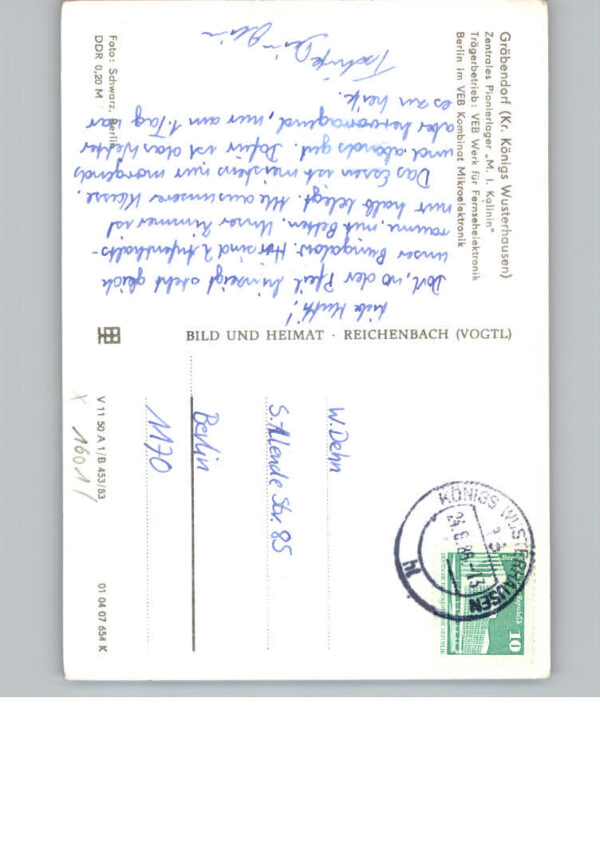 Gräbendorf (Kr. Königs Wusterhausen)
Zentrales Pionierlager „M. I. Kalinin"
Trägerbetrieb: VEB Werk für Fernsehelektronik
Berlin im VEB Kombinat Mikroelektronik
Liebe Mutti!
Dort, wo der Pfeil hinzeigt steht gleich
unser Bungalow. Hier sind 2 Aufenthalts-
räume, mit Betten. Unser Zimmer ist
nur halb belegt. Alle aus unserer Klasse.
Das Essen ist meistens nur morgends
und abends gut. Dafür ist das Wetter
aber hervorragend, nur am 1. Tag war
es zu heiß.
Tschüß Dein
Foto: Schwarz, Berlin
DDR 0,20 M
BILD UND HEIMAT · REICHENBACH (VOGTL)
W. Dehn
S. Allende Str. 85
Berlin
1170
KÖNIGS WUSTERHAUSEN
10
V 11 50 A 1/B 453/83
01 04 07 654 K